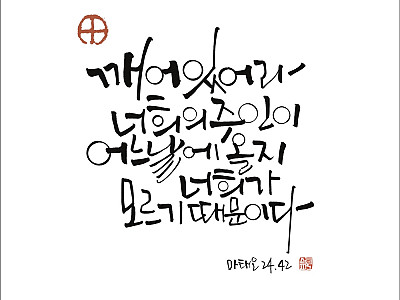 깨어있어라
너희의 주인이
어느 날에 올지
너희가
모르기 때문이다
마태오 24.42